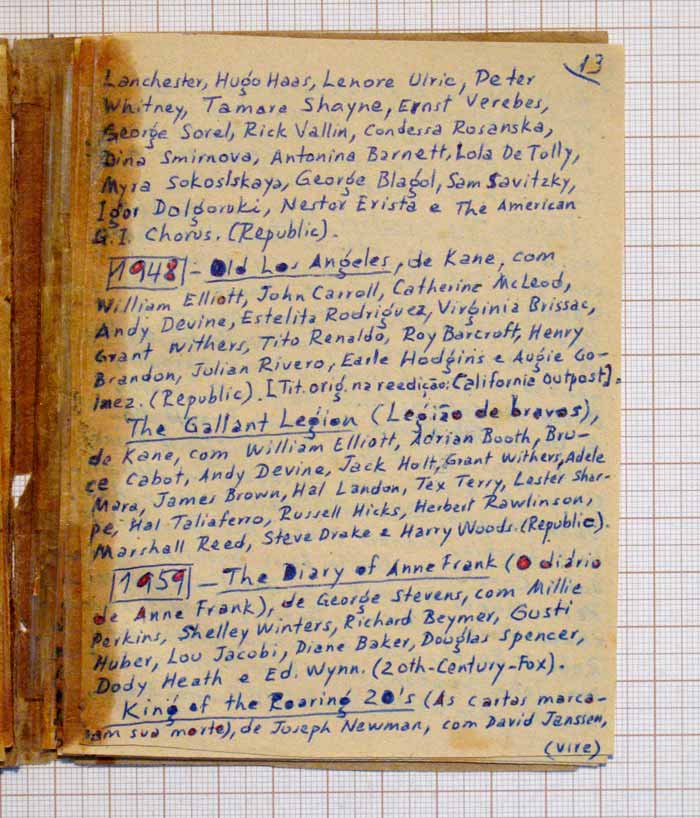 13
Lanchester, Hugo Haas, Lenore Ulric, Peter
Whitney, Tamara Shayne, Ernst Verebes,
George Sorel, Rick Vallin, Condessa Rosanska,
Dina Smirnova, Antonina Barnett, Lola De Tolly,
Myra Sokoslskaya, George Blagol, Sam Savitzky,
Igor Dolgoruki, Nestor Erista e The American
G.I. Chorus. (Republic).
1948 - Old Los Angeles, de Kane, com
William Elliott, John Carroll, Catherine McLeod,
Andy Devine, Estelita Rodriguez, Virginia Brissac,
Grant Withers, Tito Renaldo, Roy Barcroft, Henry
Brandon, Julian Rivero, Earle Hodgins e Augie Go-
mez. (Republic). [Tit. orig. na reedição: California Outpost].
The Gallant Legion (Legião de bravos),
de Kane, com William Elliott, Adrian Booth, Bru-
ce Cabot, Andy Devine, Jack Holt, Grant Withers, Adele
Mara, James Brown, Hal Landon, Tex Terry, Lester Shar-
pe, Hal Taliaferro, Russell Hicks, Herbert Rawlinson,
Marshall Reed, Steve Drake e Harry Woods. (Republic).
1959 - The Diary of Anne Frank (O diário
de Anne Frank), de George Stevens, com Millie
Perkins, Shelley Winters, Richard Beymer, Gusti
Huber, Lou Jacobi, Diane Baker, Douglas Spencer,
Dody Heath e Ed. Wynn. (20th-Century-Fox).
King of the Roaring 20's (As cartas marca-
am sua morte), de Joseph Newman, com David Janssen,
(vire)